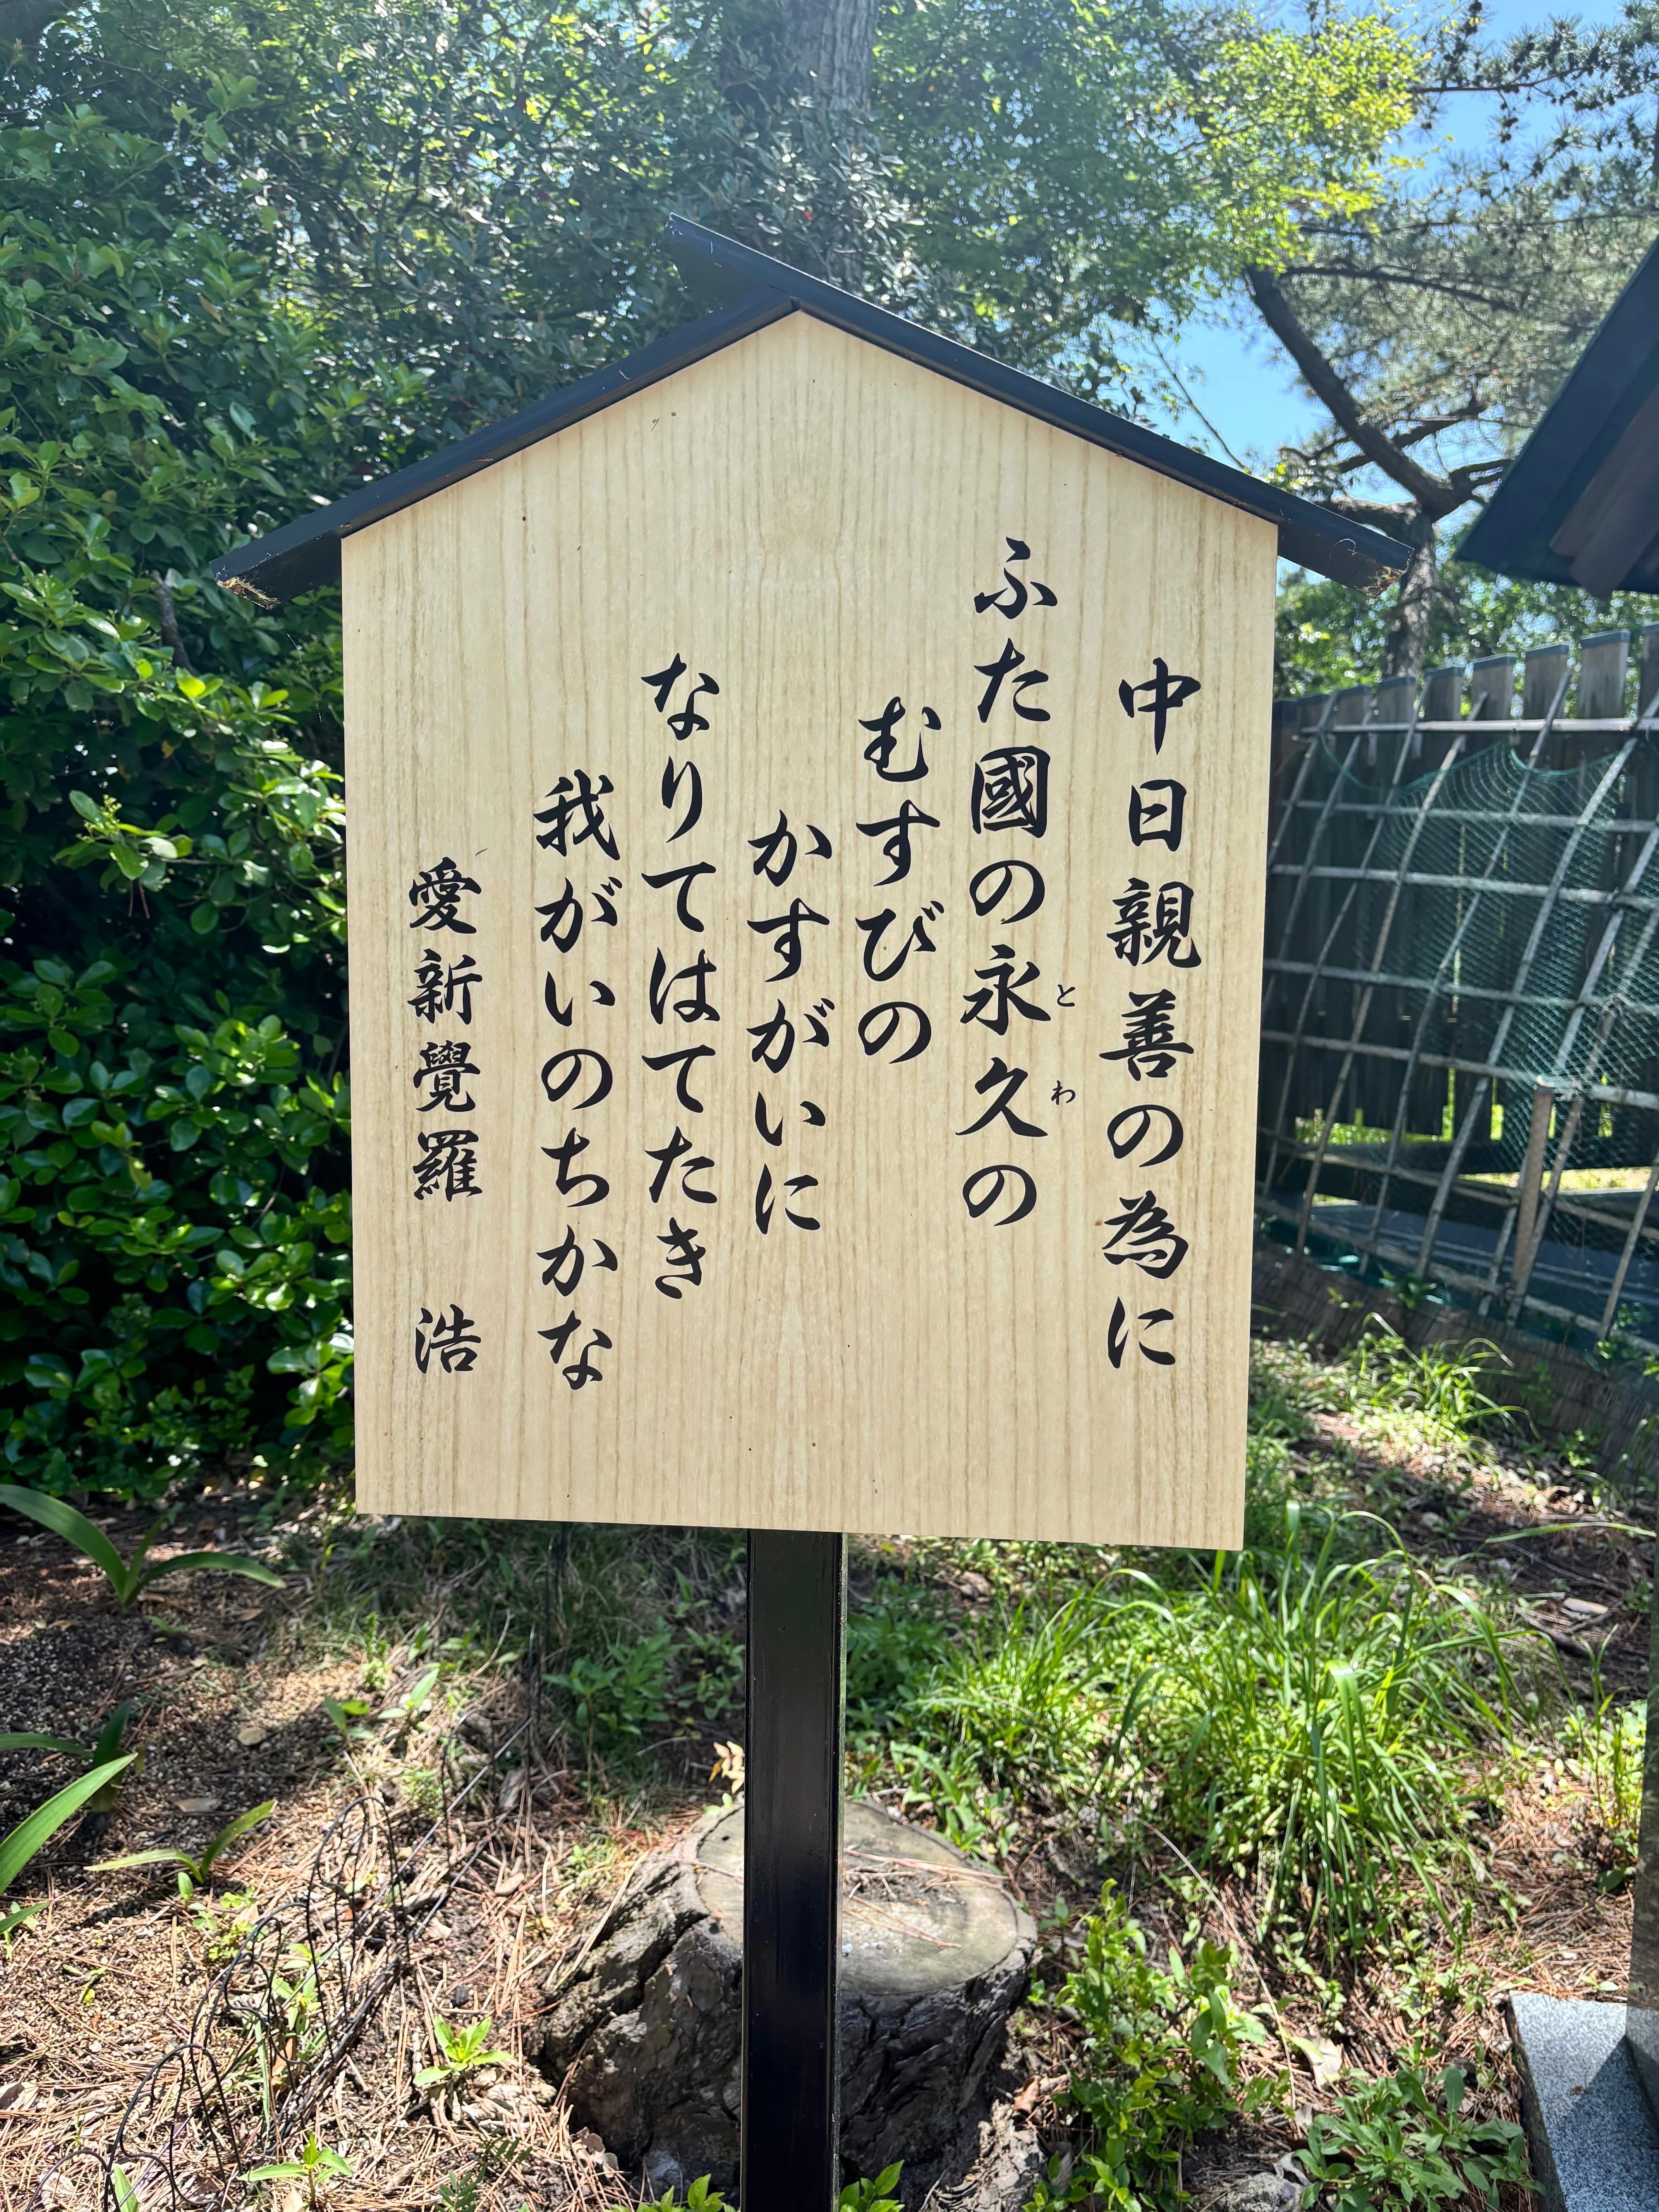 中日親善の為に
ふた國の永久の
とわ
むすびの
かすがいに
なりてはてたき
我がいのちかな
愛新覺羅 浩